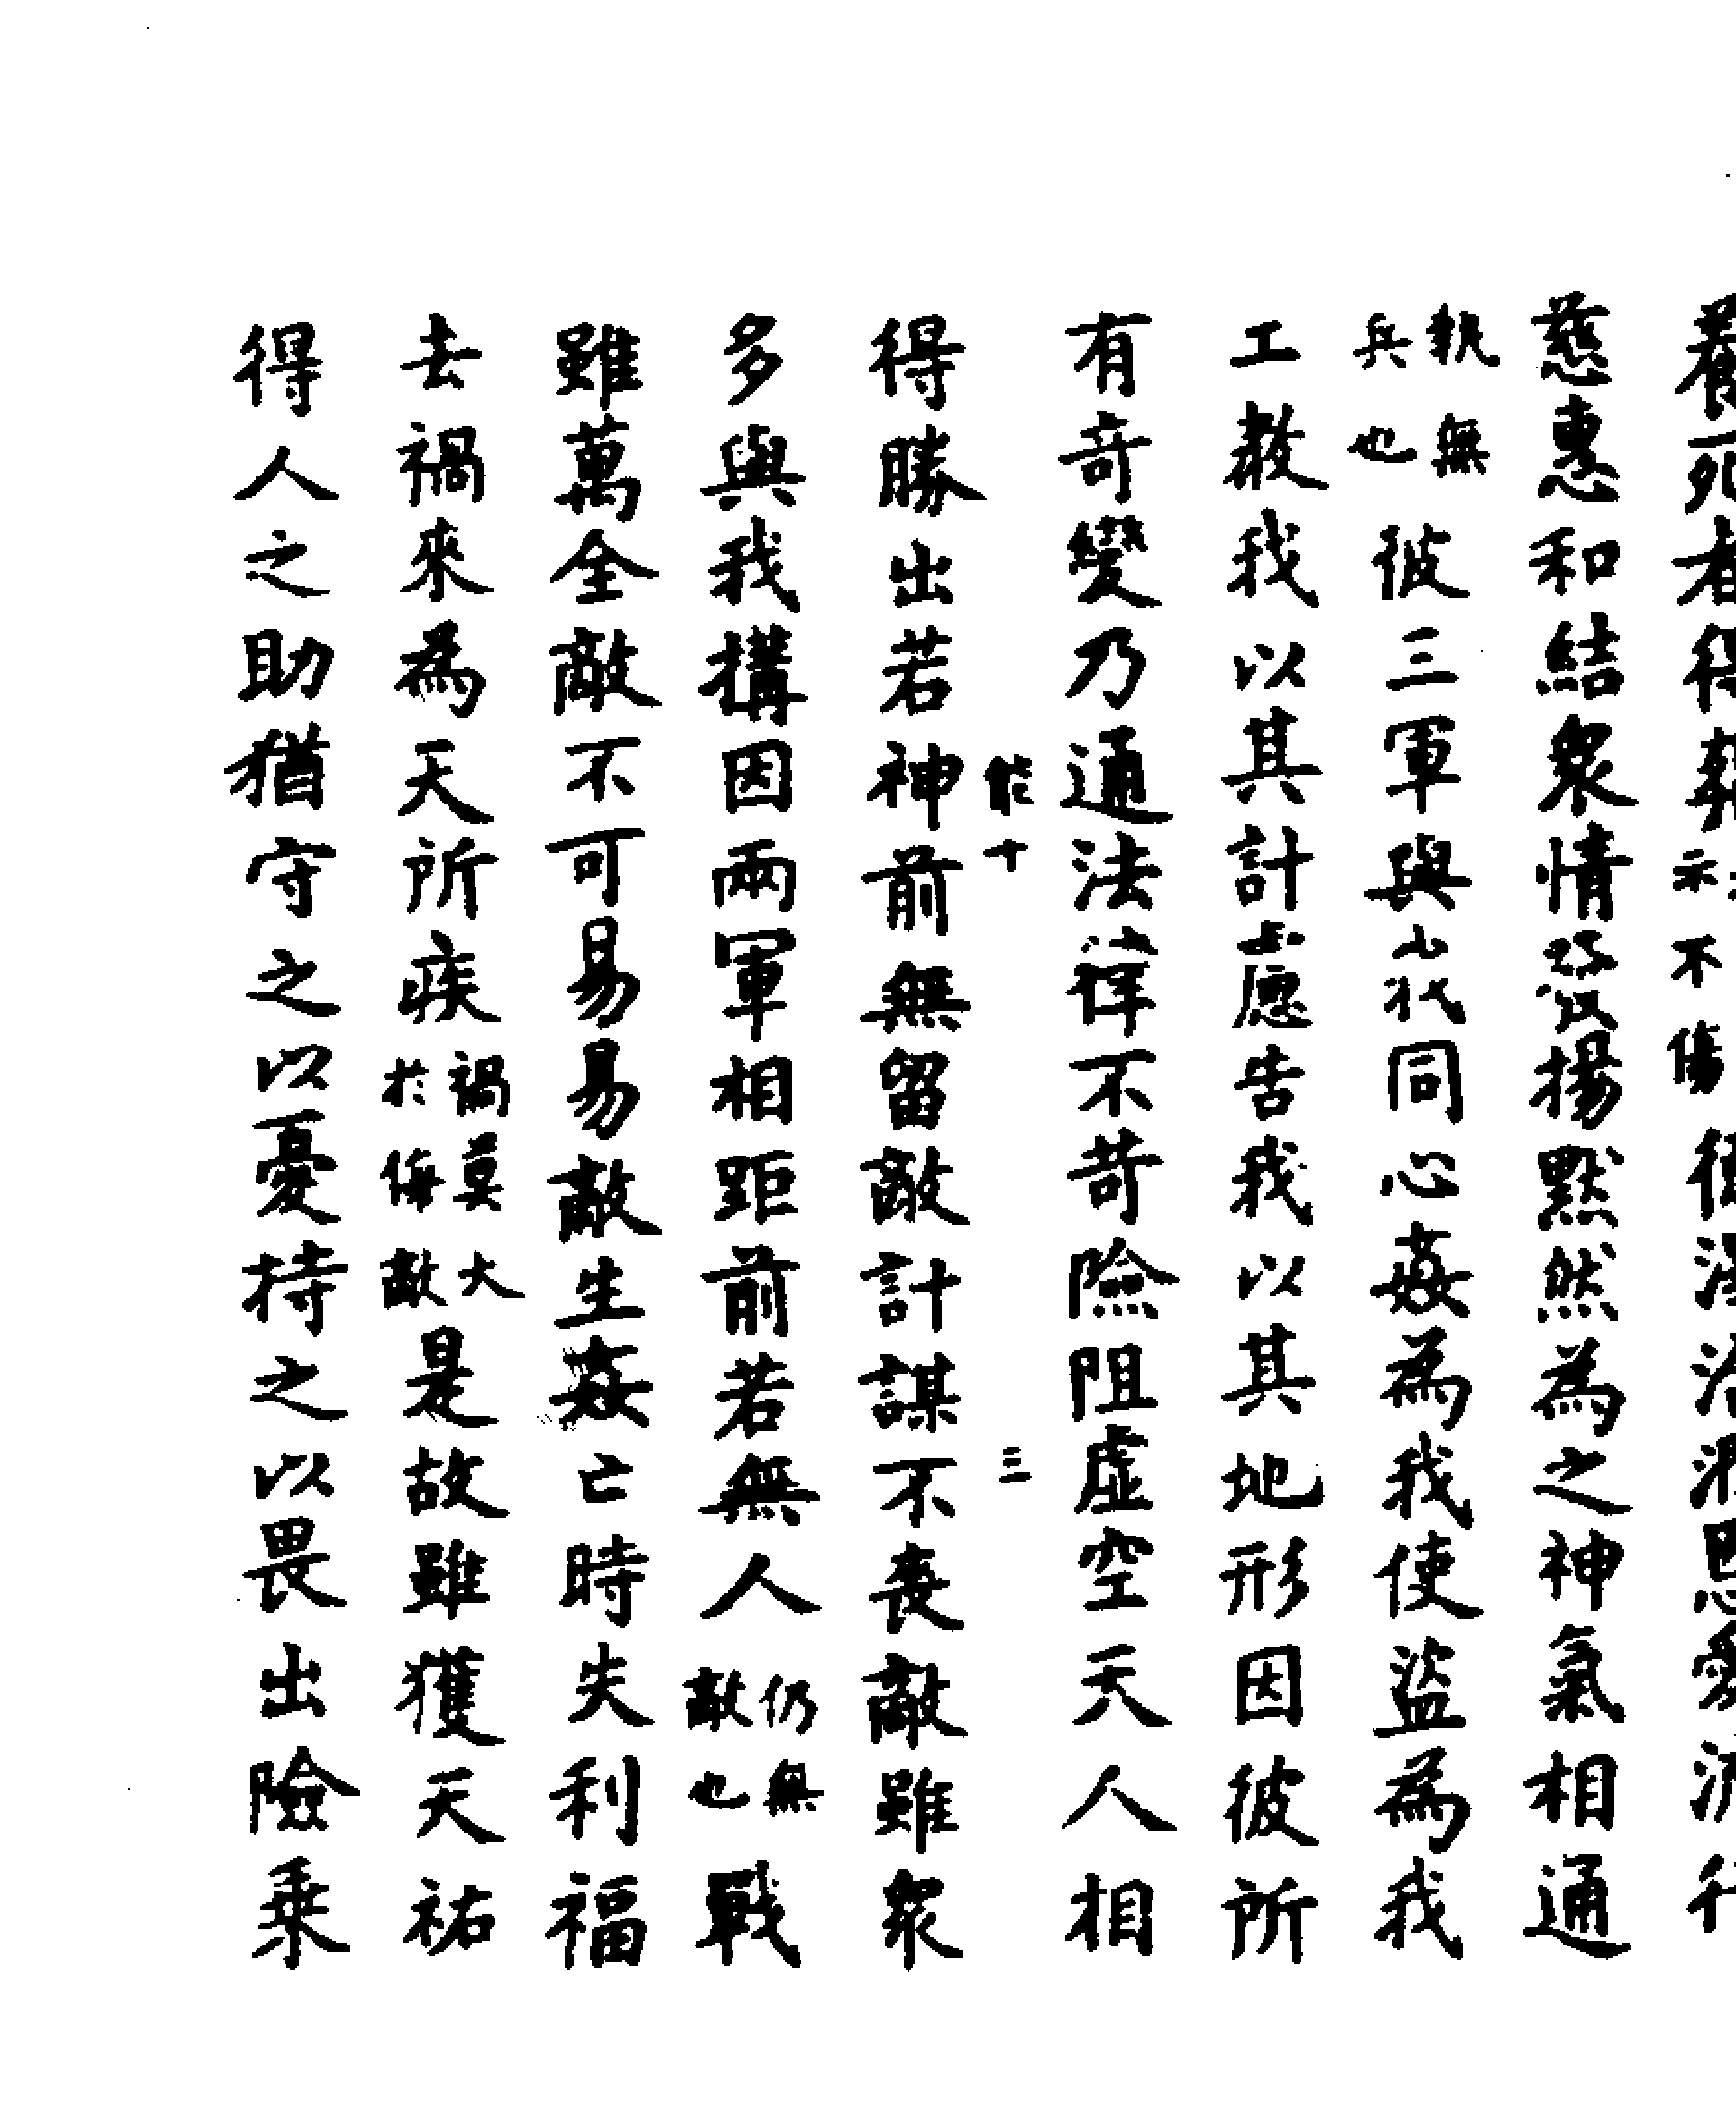 養死者得葬示不傷德澤洽潤恩愛流行
慈惠和結衆情發揚默然為之神氣相通
執無兵也彼三軍與我同心姦為我使盜為我
工教我以其計慮告我以其地形因彼所
有奇變乃通法律不苛險阻虛空天人相
能十 三
得勝出若神前無留敵計謀不喪敵雖衆
多與我搆因兩軍相距前若無人仍無敵也戰
雖萬全敵不可易易敵生姦亡時失利福
去禍來為天所疾禍莫大於侮敵是故雖獲天祐
得人之助猶守之以憂持之以畏出險乘